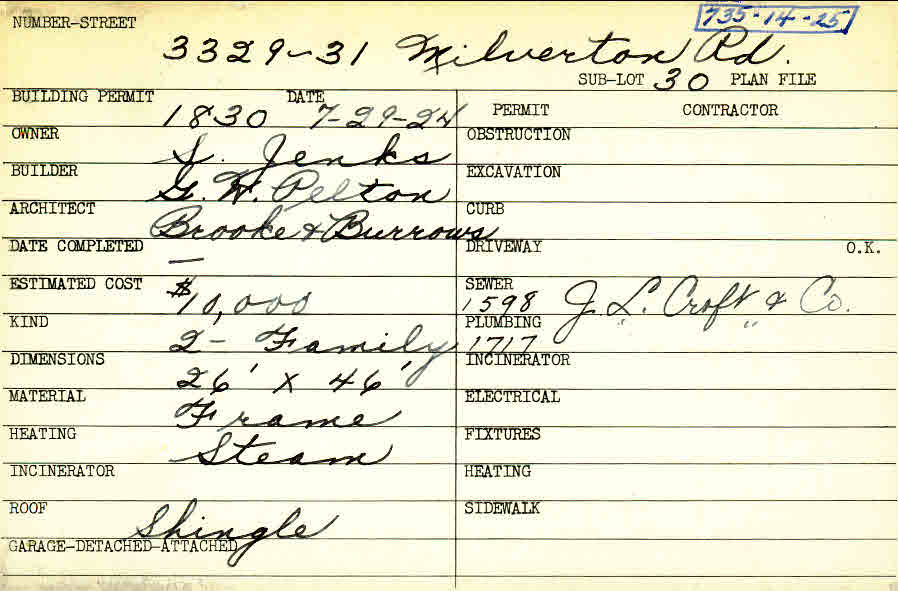 735-14-25
NUMBER-STREET
3329-31 Milverton Rd.
SUB-LOT 30 PLAN FILE
BUILDING PERMIT 1830 DATE 7-29-24
PERMIT CONTRACTOR
OWNER S. Jenks
OBSTRUCTION
BUILDER G. W. Pelton
EXCAVATION
ARCHITECT Brooke & Burrows
CURB
DATE COMPLETED —
DRIVEWAY O.K.
ESTIMATED COST $10,000
SEWER 1598 J. L. Croft & Co.
KIND 2- Family
PLUMBING 1717 " "
DIMENSIONS 26' X 46'
INCINERATOR
MATERIAL Frame
ELECTRICAL
HEATING Steam
FIXTURES
INCINERATOR
HEATING
ROOF Shingle
SIDEWALK
GARAGE-DETACHED-ATTACHED